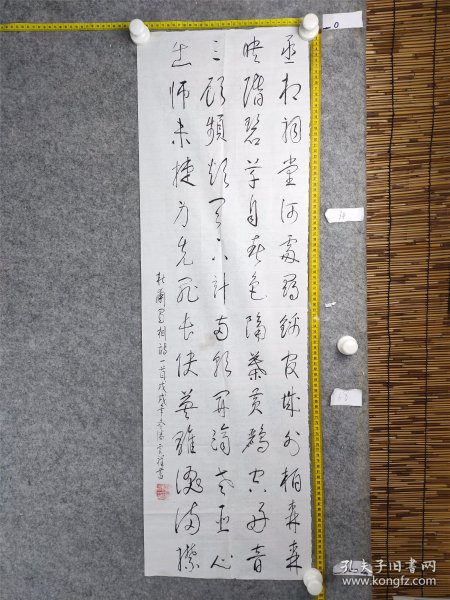 丞相祠堂何處尋錦官城外柏森森
映階碧草自春色隔葉黃鸝空好音
三顧頻煩天下計兩朝開濟老臣心
出師未捷身先死長使英雄淚滿襟
杜甫蜀相詩一首戊戌年冬
0
孔夫子旧书网
www.kongfz.com